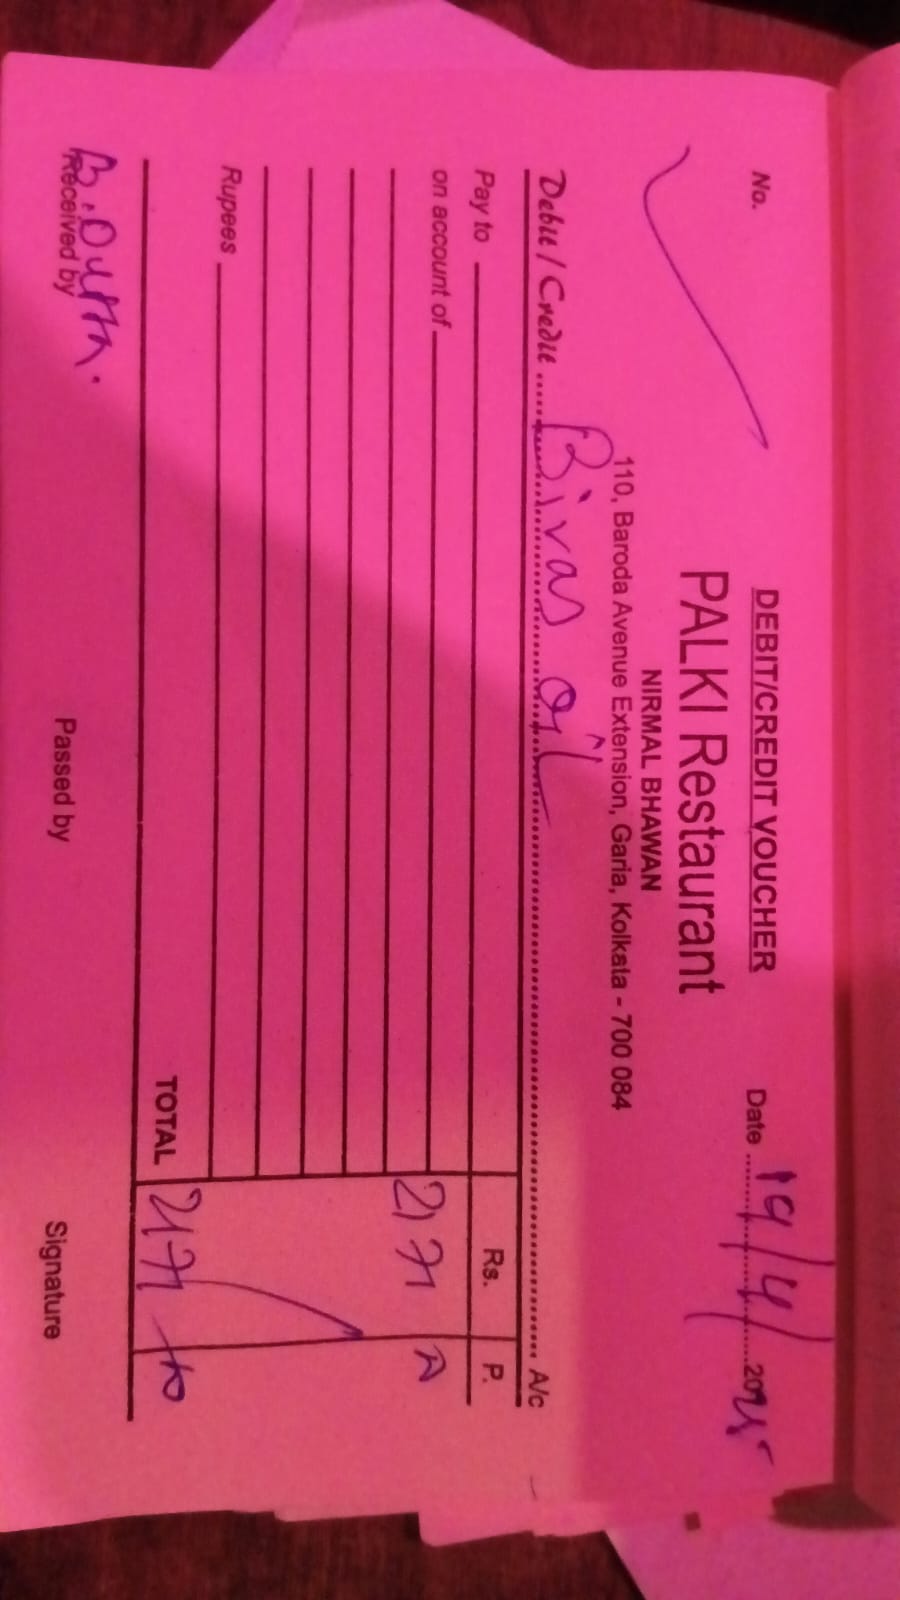 DEBIT/CREDIT VOUCHER
No.
Date 19/4/2025
PALKI Restaurant
NIRMAL BHAWAN
110, Baroda Avenue Extension, Garia, Kolkata - 700 084
Debit / Credit Bivas oil A/c
Pay to Rs. P.
on account of
Rupees
TOTAL
Received by Passed by Signature